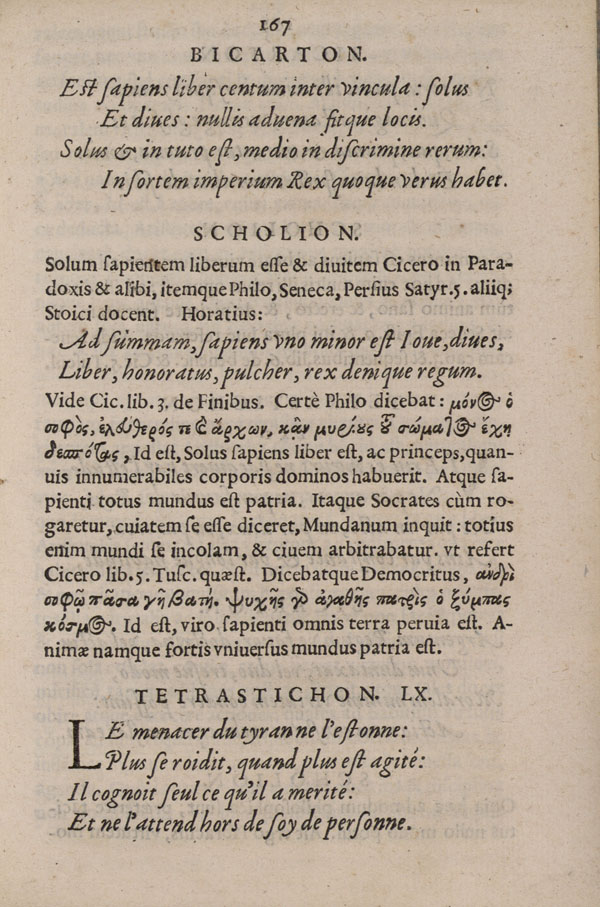 167
BICARTON.
Est sapiens liber centum inter vincula : solus
Et diues : nullis aduena fitque locis.
Solus & in tuto est, medio in discrimine rerum:
In sortem imperium Rex quoque verus habet.
SCHOLION.
Solum sapientem liberum esse & diuitem Cicero in Para-
doxis & alibi, itemque Philo, Seneca, Persius Satyr.5. aliiq;
Stoici docent. Horatius:
Ad summam, sapiens vno minor est Ioue, diues,
Liber, honoratus, pulcher, rex denique regum.
Vide Cic. lib. 3. de Finibus. Certè Philo dicebat : μόνος ὁ
σοφὸς, ἐλεύθερός τε καὶ ἄρχων, κᾂν μυρίους τοῦ σώματος ἔχῃ
δεσπότας, Id est, Solus sapiens liber est, ac princeps, quan-
uis innumerabiles corporis dominos habuerit. Atque sa-
pienti totus mundus est patria. Itaque Socrates cùm ro-
garetur, cuiatem se esse diceret, Mundanum inquit : totius
enim mundi se incolam, & ciuem arbitrabatur. vt refert
Cicero lib. 5. Tusc. quæst. Dicebatque Democritus, ἀνδρὶ
σοφῷ πᾶσα γῆ βατή. ψυχῆς γὰρ ἀγαθῆς πατρὶς ὁ ξύμπας
κόσμος. Id est, viro sapienti omnis terra peruia est. A-
nimæ namque fortis vniuersus mundus patria est.
TETRASTICHON. LX.
LE menacer du tyran ne l'estonne:
Plus se roidit, quand plus est agité:
Il cognoit seul ce qu'il a merité:
Et ne l'attend hors de soy de personne.